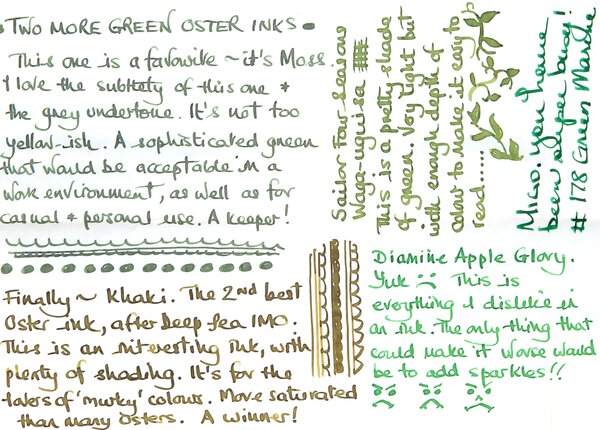 • TWO MORE GREEN OSTER INKS •
This one is a favourite ~ it's Moss.
I love the subtlety of this one +
the grey undertone. It's not too
yellow-ish. A sophisticated green
that would be acceptable in a
work environment, as well as for
casual + personal use. A keeper!
Finally ~ Khaki. The 2nd best
Oster ink, after Deep Sea IMO.
This is an interesting ink, with
plenty of shading. It's for the
lovers of 'murky' colours. More saturated
than many Osters. A winner!
Sailor Four Seasons
Waga-uguisu
This is a pretty shade
of green. Very light but
with enough depth of
colour to make it easy to
read.....
Migo. You have
been super busy!
# 178 Green Marine
Diamine Apple Glory.
Yuk :( This is
everything I dislike in
an ink. The only thing that
could make it worse would
be to add sparkles!!